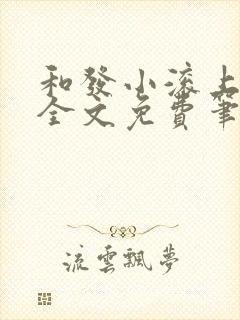 和發小滚上
全文免費筆
流雲飄夢